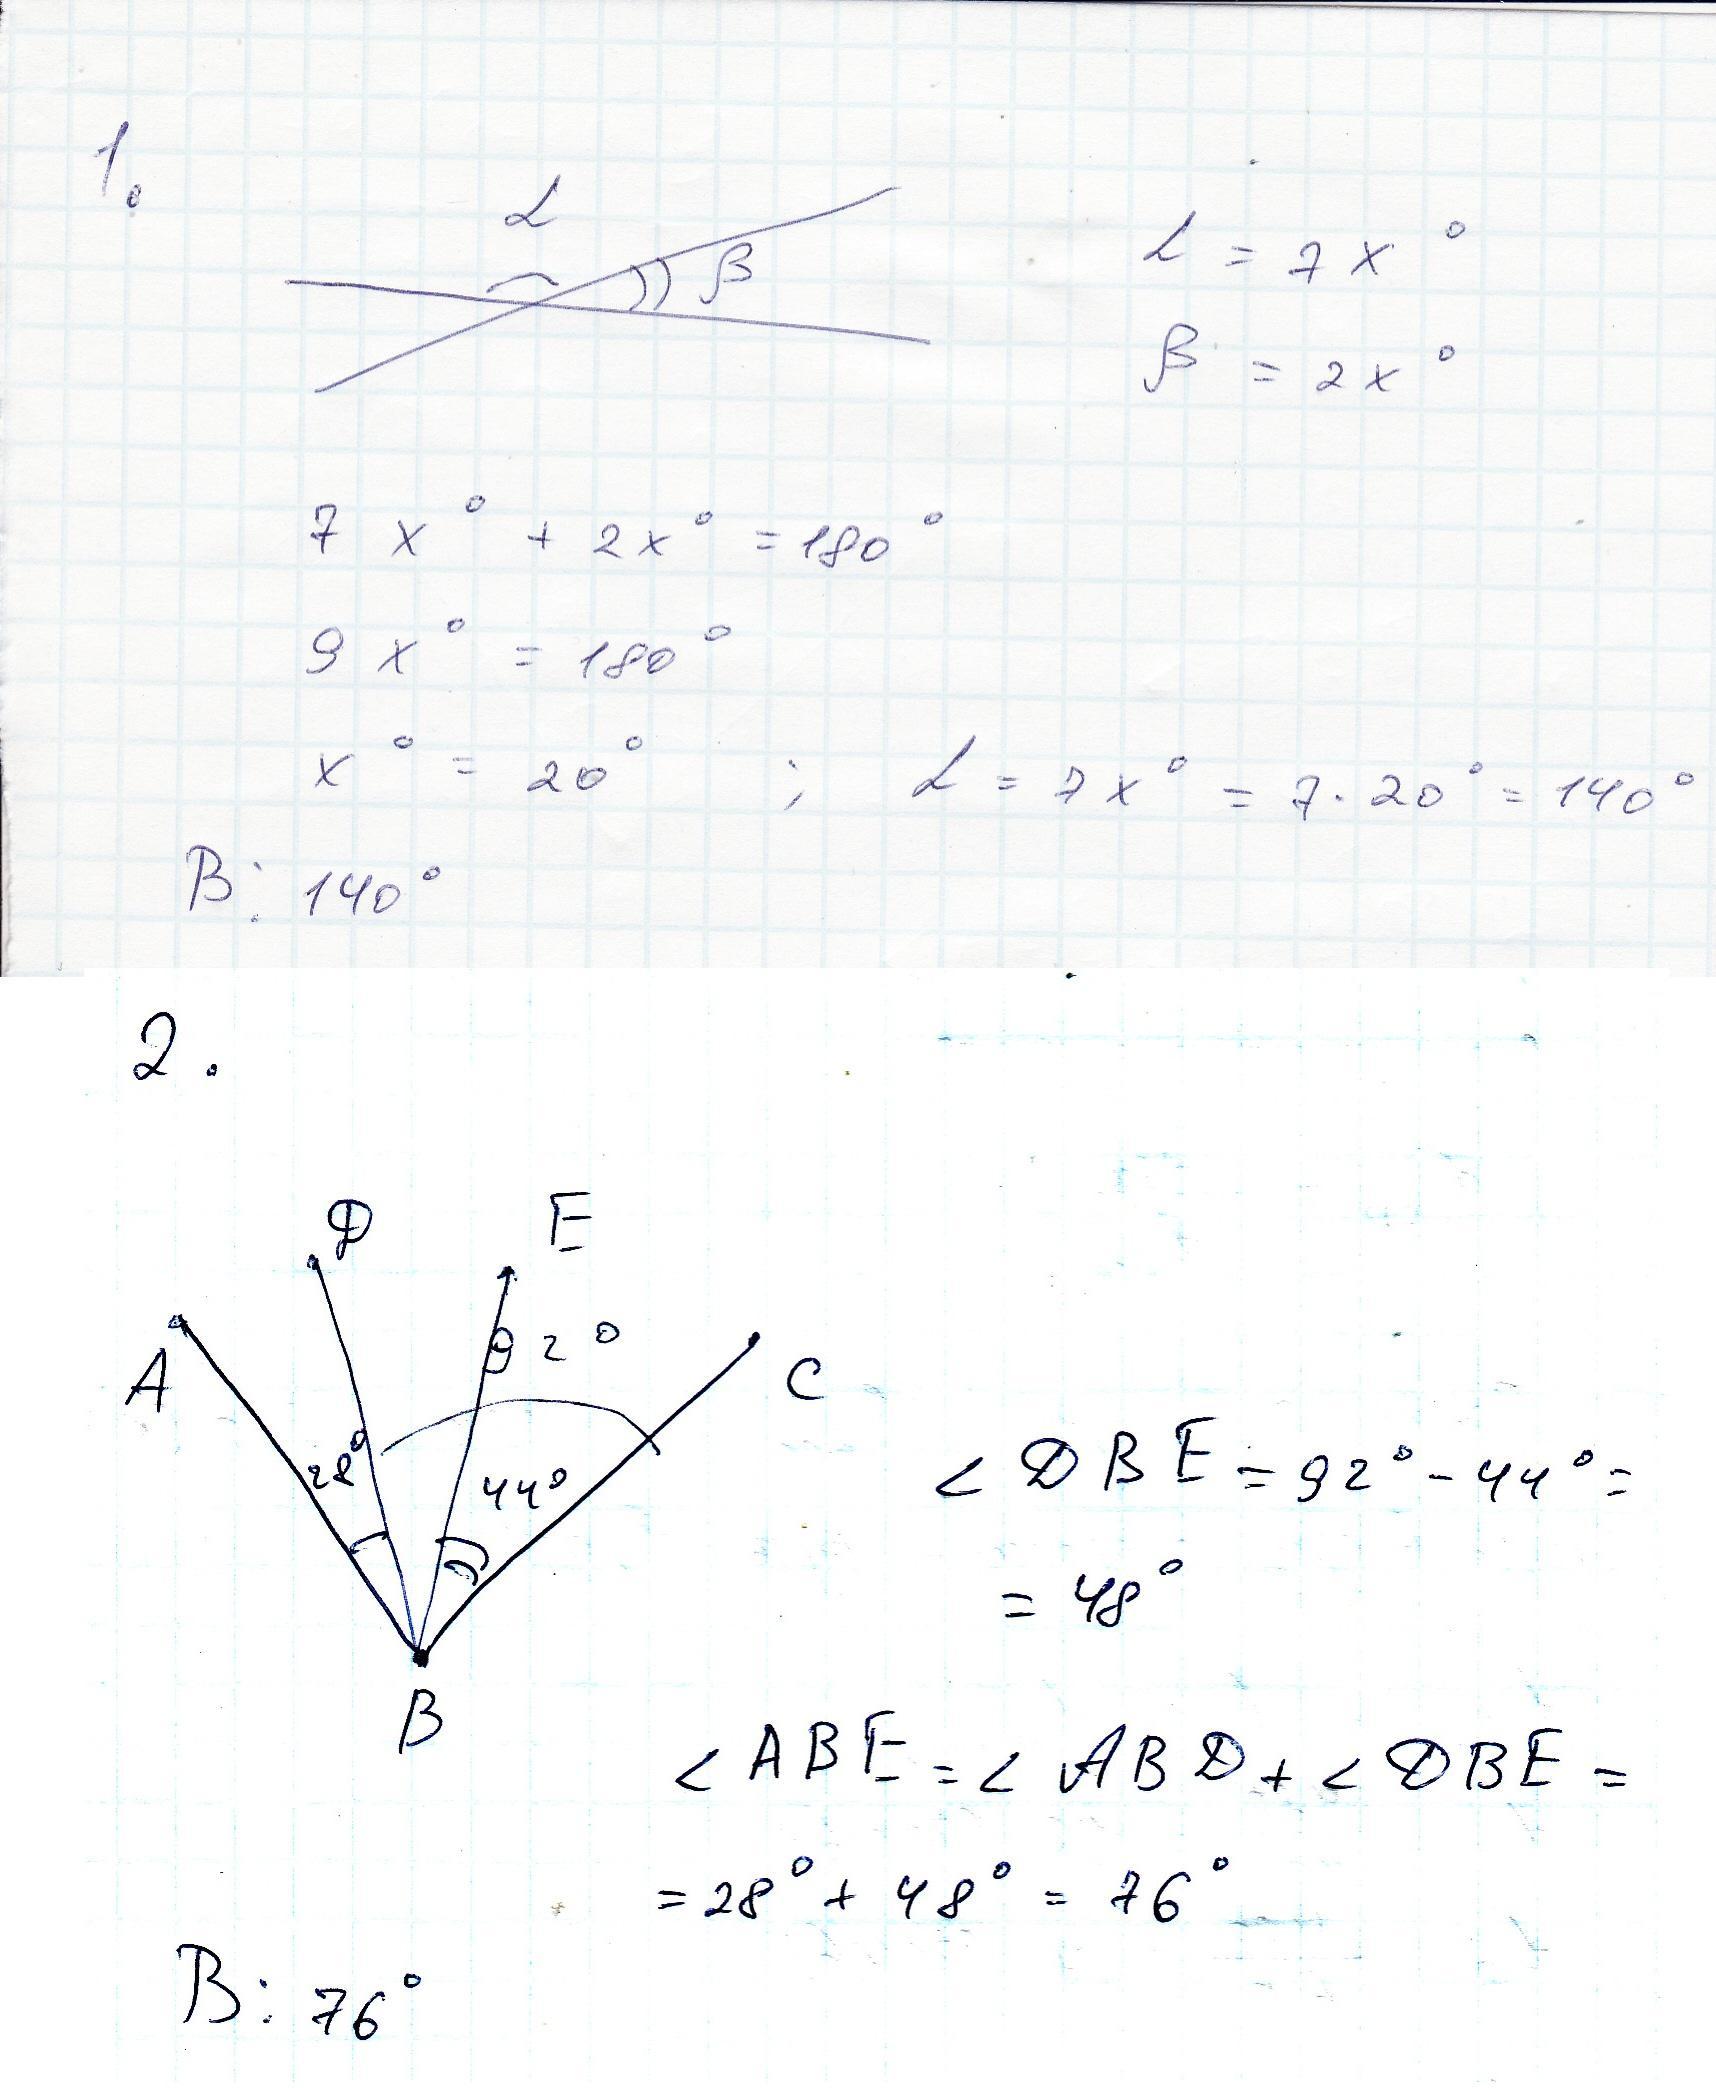 1.
α
β
α = 7x°
β = 2x°
7x° + 2x° = 180°
9x° = 180°
x° = 20° ; α = 7x° = 7·20° = 140°
В: 140°
2.
D E
A 92° C
28° 44°
B
∠DBE = 92° - 44° =
= 48°
∠ABE = ∠ABD + ∠DBE =
= 28° + 48° = 76°
В: 76°